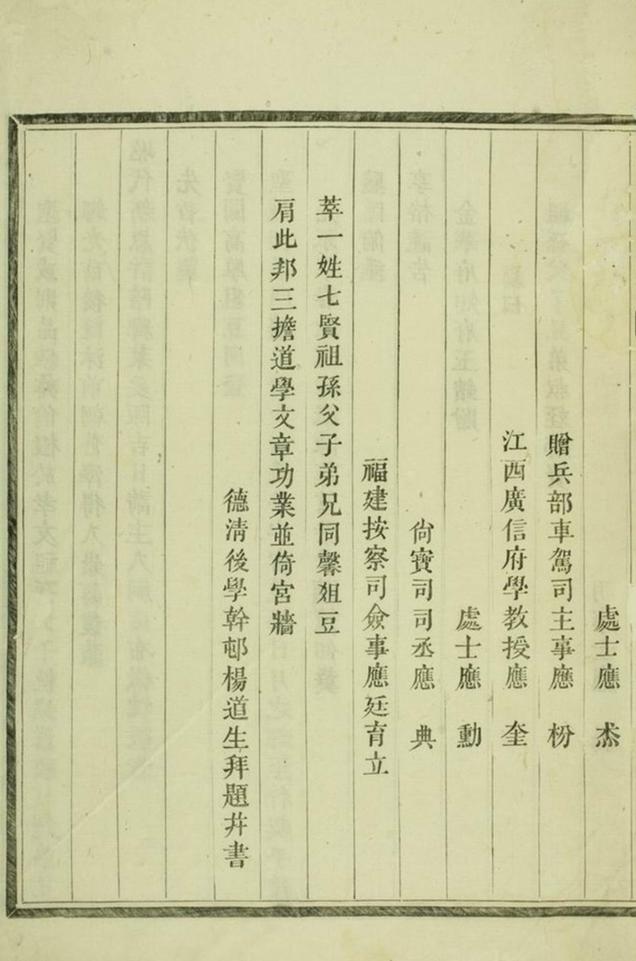 處士應 杰
贈兵部車駕司主事應 枌
江西廣信府學教授應 奎
處士應 勳
尙寶司司丞應 典
福建按察司僉事應廷育立
萃一姓七賢祖孫父子弟兄同馨俎豆
肩此邦三擔道學文章功業並倚宮牆
德淸後學幹邨楊道生拜題幷書